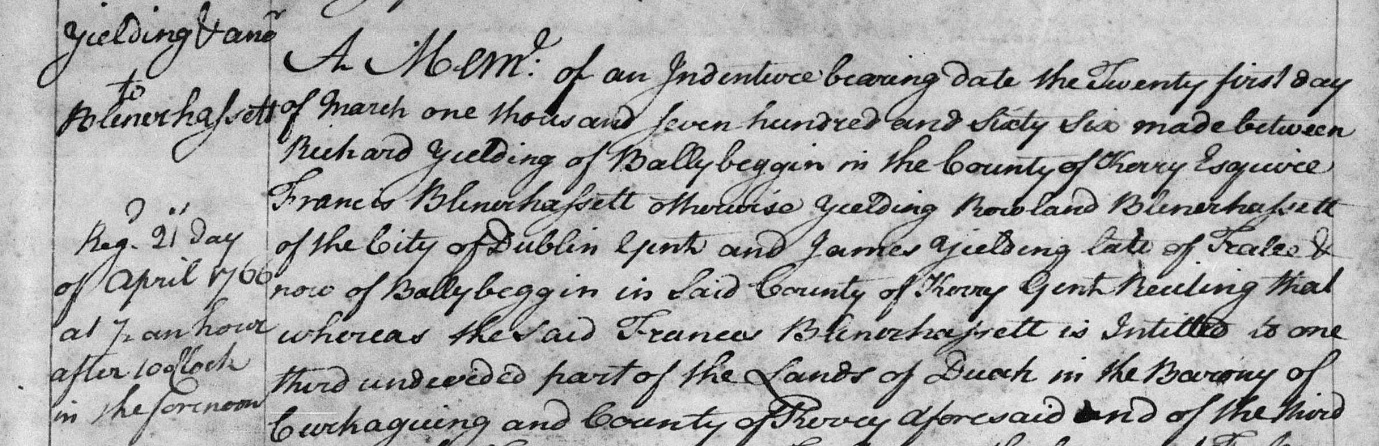 Yielding & anr
to
Blenerhassett
Regd. 21st day
of April 1766
at ½ an hour
after 10 oClock
in the forenoon
A Memd: of an Indenture bearing date the Twenty first day
of March one thousand seven hundred and Sixty Six made between
Richard Yielding of Ballybeggin in the County of Kerry Esquire
Francis Blenerhassett otherwise Yielding Rowland Blenerhassett
of the City of Dublin Gent and James Yielding late of Tralee &
now of Ballybeggin in Said County of Kerry Gent Reciting that
whereas the Said Frances Blenerhassett is Intitled to one
third undevided part of the Lands of Duah in the Barony of
and County of Kerry aforesaid and of the third